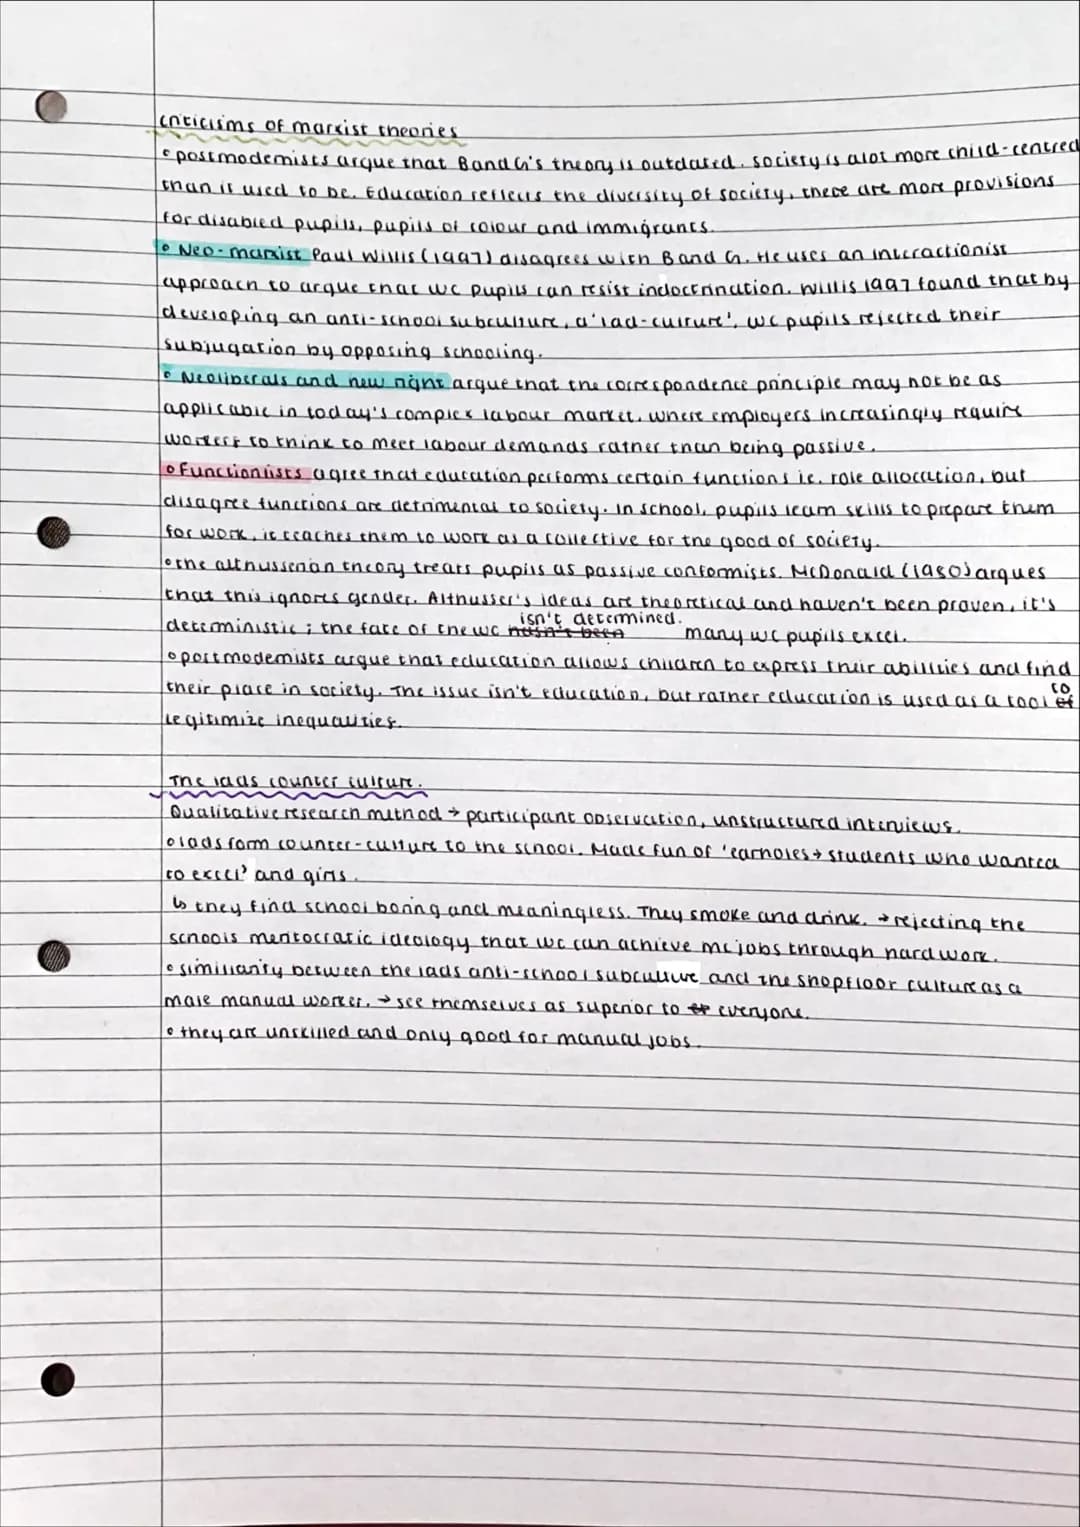 criticisms of marxist theories
• postmodernists argue that B and G's theory is outdated. society is alot more child-centred
than it used to be. Education reflects the diversity of society, there are more provisions
for disabled pupils, pupils of colour and immigrants.
• Neo-marxist Paul Willis (1997) disagrees with B and G. He uses an interactionist
approach to argue that wc pupils can resist indoctrination. willis 1997 found that by
developing an anti-school subculture, a 'lad-culture', wc pupils rejected their
subjugation by opposing schooling.
• Neoliberals and new right argue that the correspondence principle may not be as
applicable in today's complex labour market, where employers increasingly require
workers to think to meet labour demands rather than being passive.
• Functionlists agree that education performs certain functions ie. role allocation, but
disagree functions are detrimental to society. In school, pupils learn skills to prepare them
for work, it teaches them to work as a collective for the good of society.
• the althusserian theory treats pupils as passive conformists. McDonald (1980) argues
that this ignores gender. Althusser's ideas are theoretical and haven't been proven, it's
deterministic; the fate of the wc hasn't been isn't determined. many wc pupils excel.
• postmodernists argue that education allows children to express their abilities and find
their place in society. The issue isn't education, but rather education is used as a tool of to
legitimize inequalities.
The lads counter culture.
Qualitative research method → participant observation, unstructured interviews.
• lads form counter-culture to the school. Made fun of 'earholes → students who wanted
to excel' and girls.
↳ they find school boring and meaningless. They smoke and drink. → rejecting the
schools meritocratic ideology that wc can achieve mc jobs through hard work.
• similiarity between the lads anti-school subculture and the shopfloor culture as a
male manual worker. → see themselves as superior to everyone.
• they are unskilled and only good for manual jobs.